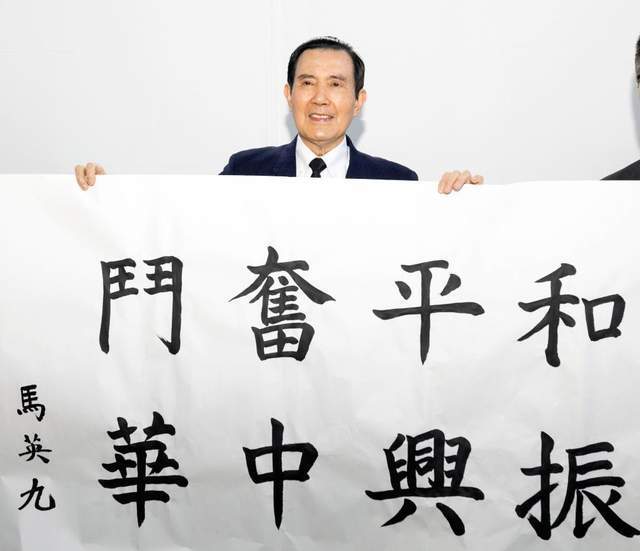 和平奮鬥
振興中華
馬英九